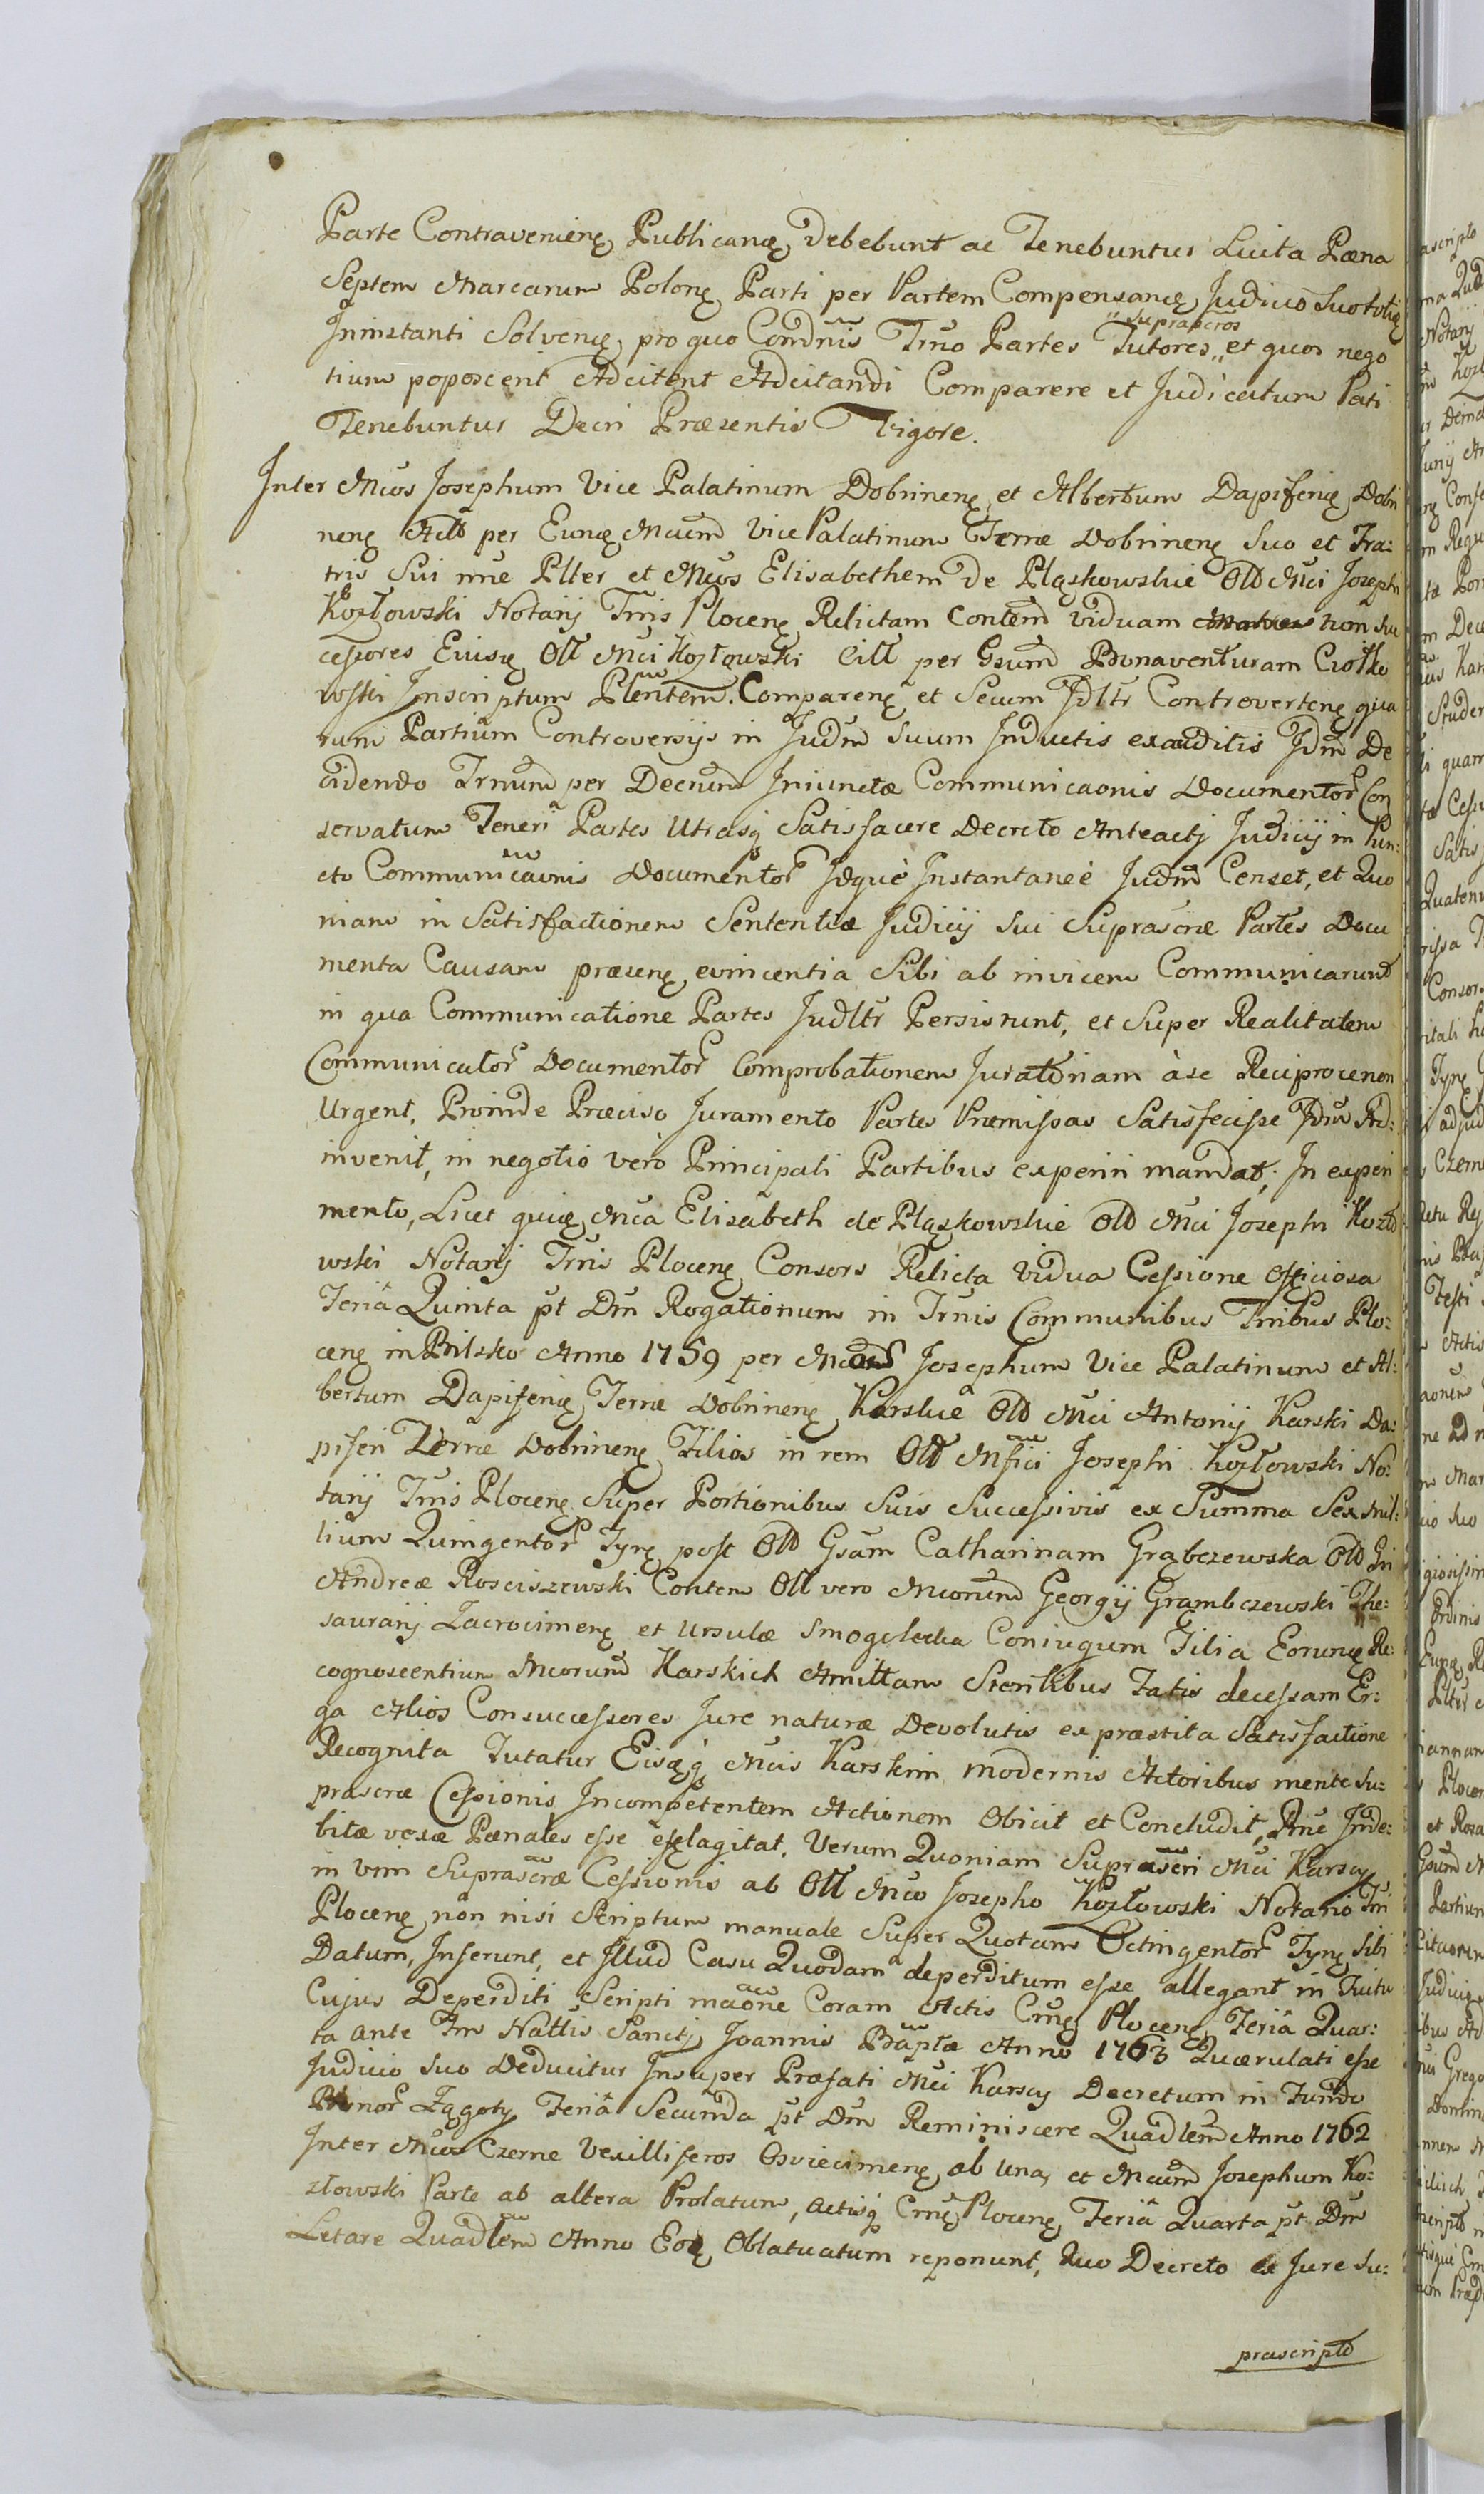 Parte Contravenieng Publicang debebunt ac Tenebuntur Luita Pæna
Septem Marcarum Polong Parti per Partem Compensang Judicio Suo toties
suprascros
Ininstanti Solveng pro quo Condnis Trno Partes Tutores,, et quos nego
tium poposcerit Adcitent Adcitandi Comparere et Judicatum Pati
Tenebuntur Decri Præsentis Vigore.
Inter Mcos Josephum Vice Palatinum Dobrineng et Albertum Dapifering Dobri
neng Actt per Eung Mcum Vice Palatinum Terræ Dobrineng Suo et Fra:
tris Sui nne Plter et Mcos Elisabethem de Pląskowskie Old Mci Josephi
Kozłowski Notarij Trris Ploceng Relictam Contem Viduam non Suc
cessores Eiusq Oll Mci Kozłowski Citt per Gsum Bonaventuram Ciołko
wski Inscriptum Plentem. Compareng et Secum Jdltr Controverteng qua
rum Partium Controversijs in Judm suum Inductis exauditis Jdm De
cidendo Trnum per Decrum Iniunctæ Communicaonis Documentor Con
servatum Teneri Partes Utrasq Satisfacere Decreto Anteactj Judicij in Pun:
cto Communicaonis Documentor Idque Instantaneè Judm Censet, et Quo
niam in Satisfactionem Sententiæ Judicij Sui Suprascræ Partes Docu
menta Causam præseng evincentia Sibi ab invicem Communicarunt
in qua Communicatione Partes Judltr Persistunt, et Super Realitatem
Communicator Documentor Comprobationem Juratoriam àse Reciproce non
Urgent, Proinde Præciso Juramento Partes Præmissas Satisfecisse Jdm Ad:
invenit, in negotio verò Principali Partibus experiri mandat; In experi
mento, Licet quidg Mca Elisabeth de Pląskowskie Old Mci Josephi Kozło
wski Notarij Trris Ploceng Consors Relicta Vidua Cessione Officiosa
Feriâ Quinta pt Dm Rogationum in Trnis Communibus Trribus Plo:
ceng in Bilsko Anno 1759 per Mcos Josephum Vice Palatinum et Al:
bertum Dapifering Terræ Dobrineng Karskie Old Mci Antonij Karski Da:
piferi Terræ Dobrineng Filios in rem Old Mfici Josephi Kozłowski No:
tarij Trris Ploceng Super Portionibus Suis Successivis ex Summa Sex mil:
lium Quingentor Tyng post Old Gsam Catharinam Grąbczewska Old Gri
Andreæ Rosciszewski Contem Oll vero Mcorum Georgij Grambczewski The:
saurarij Zacrocimeng et Ursulæ Smogolecka Coniugum Filia Eorung Re:
cognoscentium Mcorum Karskich Amittam Sterilibus Fatis decessam Er:
ga Alios Consuccessores Jure naturæ Devolutis ex præstita Satisfactione
Recognita Tutatur Eisqq Mcis Karskim modernis Actoribus mente Su:
prascræ Cessionis Incompetentem Actionem Obicit et Concludit, Pnè Inde:
bitæ vexæ Pænales esse efflagitat. Verum Quoniam Suprascri Mci Karscy
in vim Suprascræ Cessionis ab Oll Mco Josepho Kozłowski Notario Trri
Ploceng non nisi Scriptum manuale Super Quotam Octingentor Tyng Sibi
Datum, Inserunt, et Illud Casu Quodam deperditum esse allegant in Tuitu
Cujus Deperditi Scripti maõne Coram Actis Crng Ploceng Feriâ Quar:
ta ante Fm Nattis Sanctj Joannis Baptæ Anno 1763 Quærulati esse
Judicio Suo Deducitur Insuper Præfati Mci Karscy Decretum in Fundo
Bonor Zągoty Feriâ Secunda pt Dm Reminiscere Quadlem Anno 1762
Inter Mcos Czerne Vexilliferos Osviecimeng ab Una, et Mcum Josephum Ko:
złowski Parte ab altera Prolatum, Actisq Crng Ploceng Feriâ Quarta pt Dm
Letare Quadlem Anno Eodg Oblatuatum reponunt, Quo Decreto ex Jure Su:
præscripto